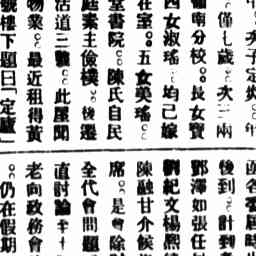 次子定炎。年
僅七歲。次三兩
嶺南分校。長女寶
四女淑瑤。均已嫁
在室。五女美瑤。
堂書院。陳氏自民
庭素主儉樸。後遷
活道三號。此屋聞
物業。最近租得黃
號樓下題曰「定廬」
後到。計到者
鄧澤如張任
劉紀文楊熙績
陳融甘介候
席。是會除
全代會問題
直討論至十
老向政務會
。仍在假期